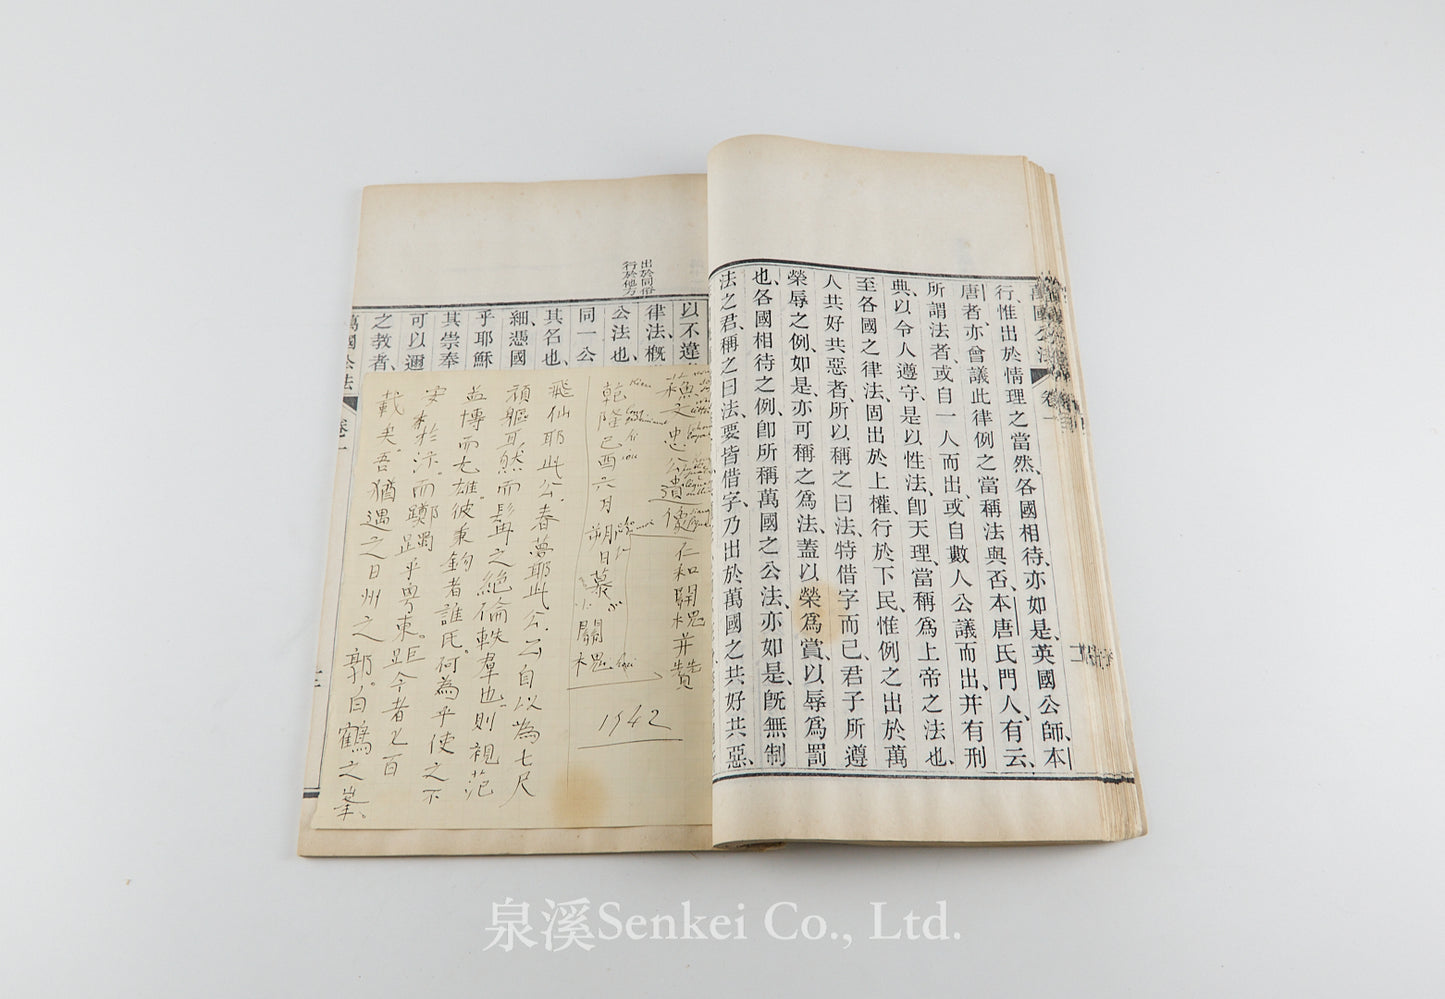 行、惟出於情理之當然、各國相待、亦如是、英國公師、本
唐者、亦曾議此律例之當稱法與否、本唐氏門人、有云、
所謂法者、或自一人而出、或自數人公議而出、并有刑
典、以令人遵守、是以性法、卽天理、當稱爲上帝之法也、
至各國之律法、固出於上權、行於下民、惟例之出於萬
人共好共惡者、所以稱之曰法、特借字而已、君子所遵
榮辱之例、如是、亦可稱之爲法、蓋以榮爲賞、以辱爲罰
也、各國相待之例、卽所稱萬國之公法、亦如是、旣無制
法之君、稱之曰法、要皆借字、乃出於萬國之共好共惡、
出於同俗
行於他方
以不違
律法、概
公法也、
同一公
其名也、
細、憑國
乎、耶穌
其崇奉
可以邇
之教者、
萬國公法
卷一
蘇文忠公遺像 仁和關槐并贊
乾隆己酉六月朔日摹 關槐
1942
飛仙耶此公。春夢耶此公。云自以為七尺
頎軀耳。然而髯之絕倫軼羣也。則視范
益博而尤雄。彼秉鈞者誰氏。何為乎使之不
安於汴。而躑躅乎粵東。距今者七百
載矣。吾猶遇之日州之郭。白鶴之峯。
泉溪Senkei Co., Ltd.